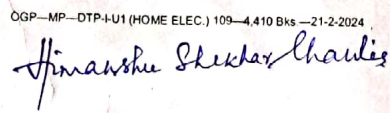 OGP—MP—DTP-I-U1 (HOME ELEC.) 109—4,410 Bks.—21-2-2024
Himanshu Shekhar